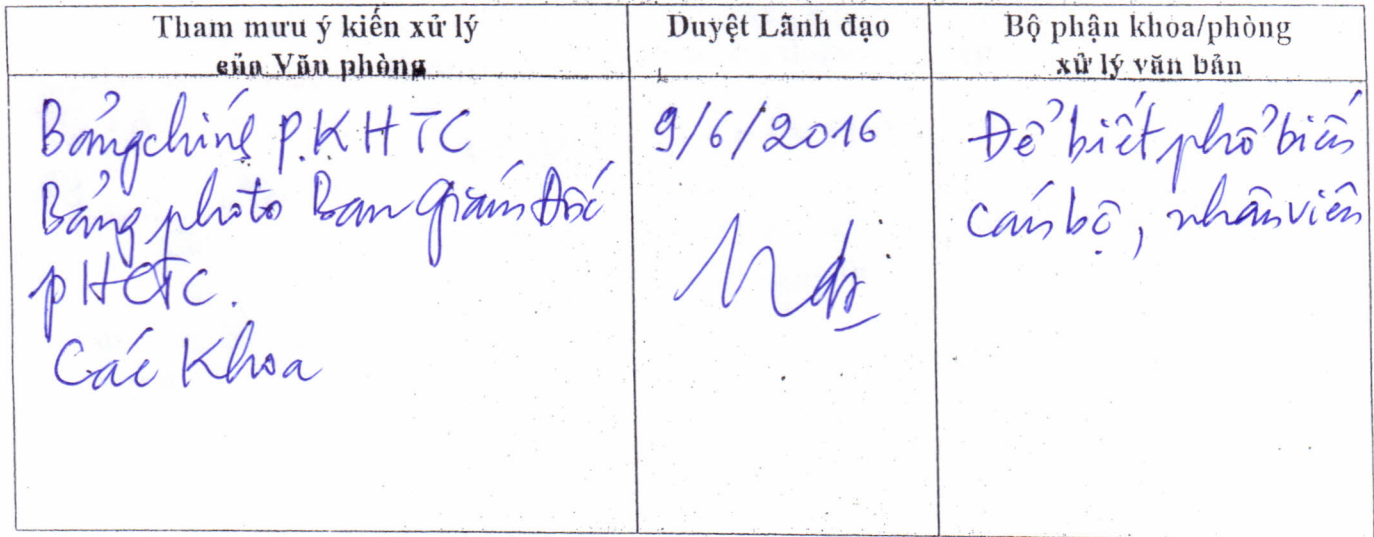 Tham mưu ý kiến xử lý
của Văn phòng
Duyệt Lãnh đạo
Bộ phận khoa/phòng
xử lý văn bản
Bảng chính P.KHTC
Bảng photo Ban Giám Đốc
pHCTC.
Các Khoa
9/6/2016
Để biết phổ biến
cán bộ, nhân viên